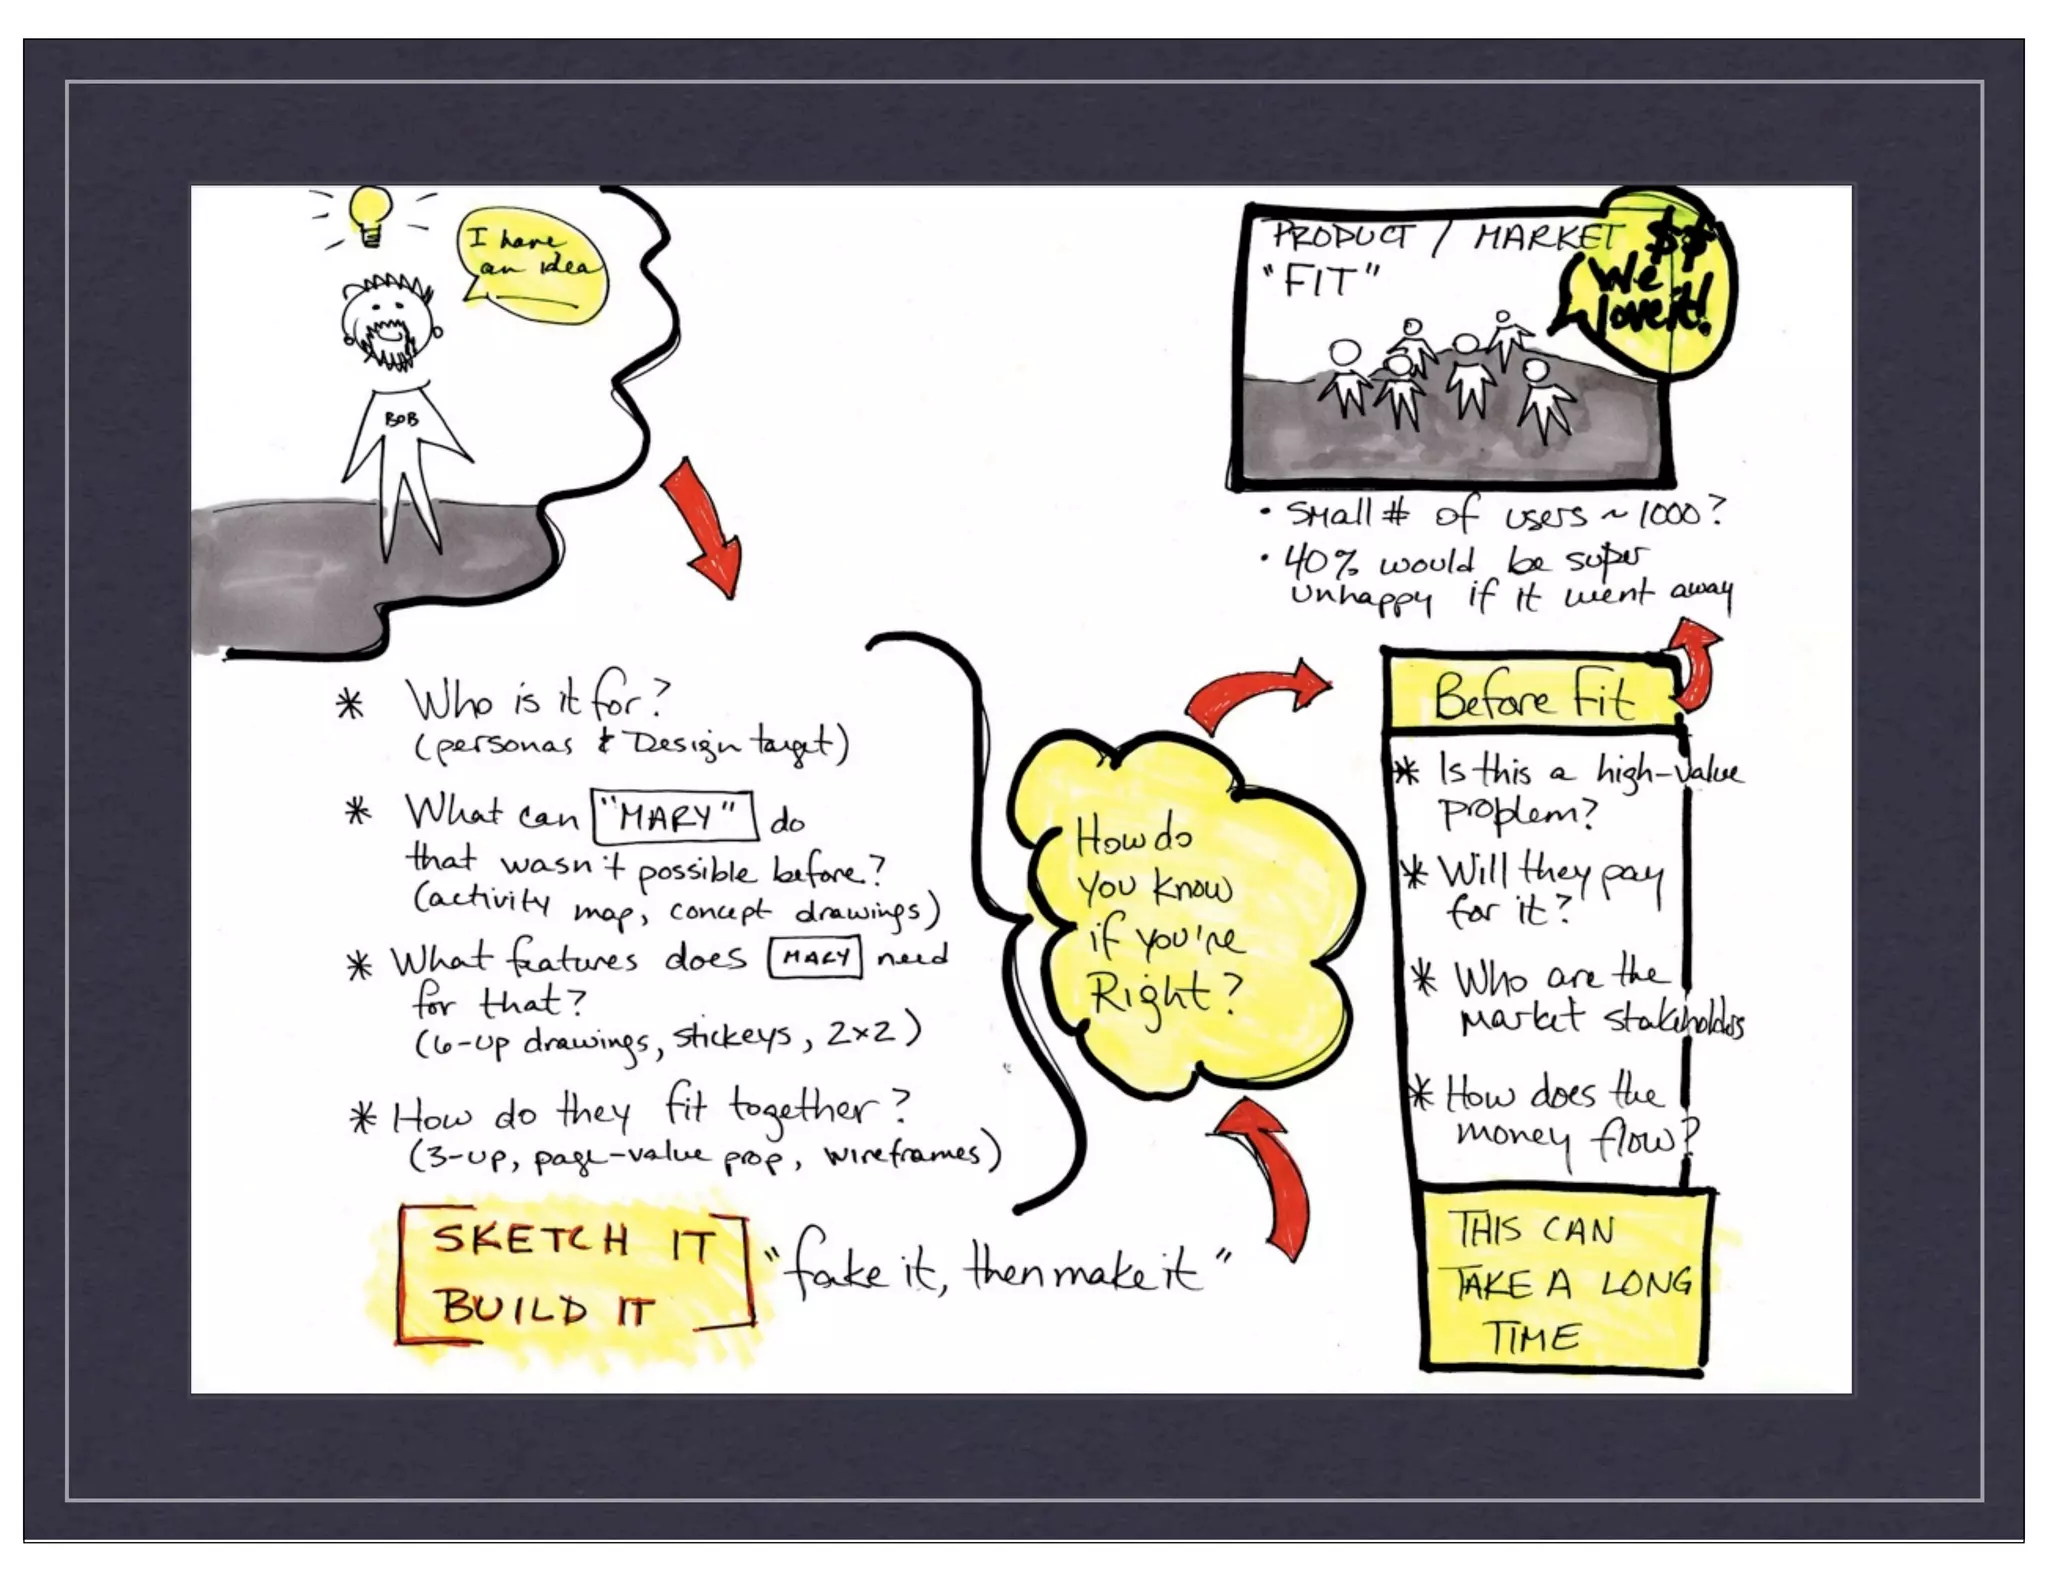 I have
an idea
BOB
* Who is it for?
(personas & Design target)
* What can "MARY" do
that wasn't possible before?
(activity map, concept drawings)
* What features does MARY need
for that?
(6-up drawings, stickeys, 2x2)
* How do they fit together?
(3-up, page-value prop, wireframes)
SKETCH IT
BUILD IT
"fake it, then make it"
How do
you know
if you're
Right?
Before Fit
* Is this a high-value
problem?
* Will they pay
for it?
* Who are the
market stakeholders
* How does the
money flow?
THIS CAN
TAKE A LONG
TIME
PRODUCT / MARKET
"FIT"
$$
We
love it!
• Small # of users ~ 1000?
• 40% would be super
unhappy if it went away